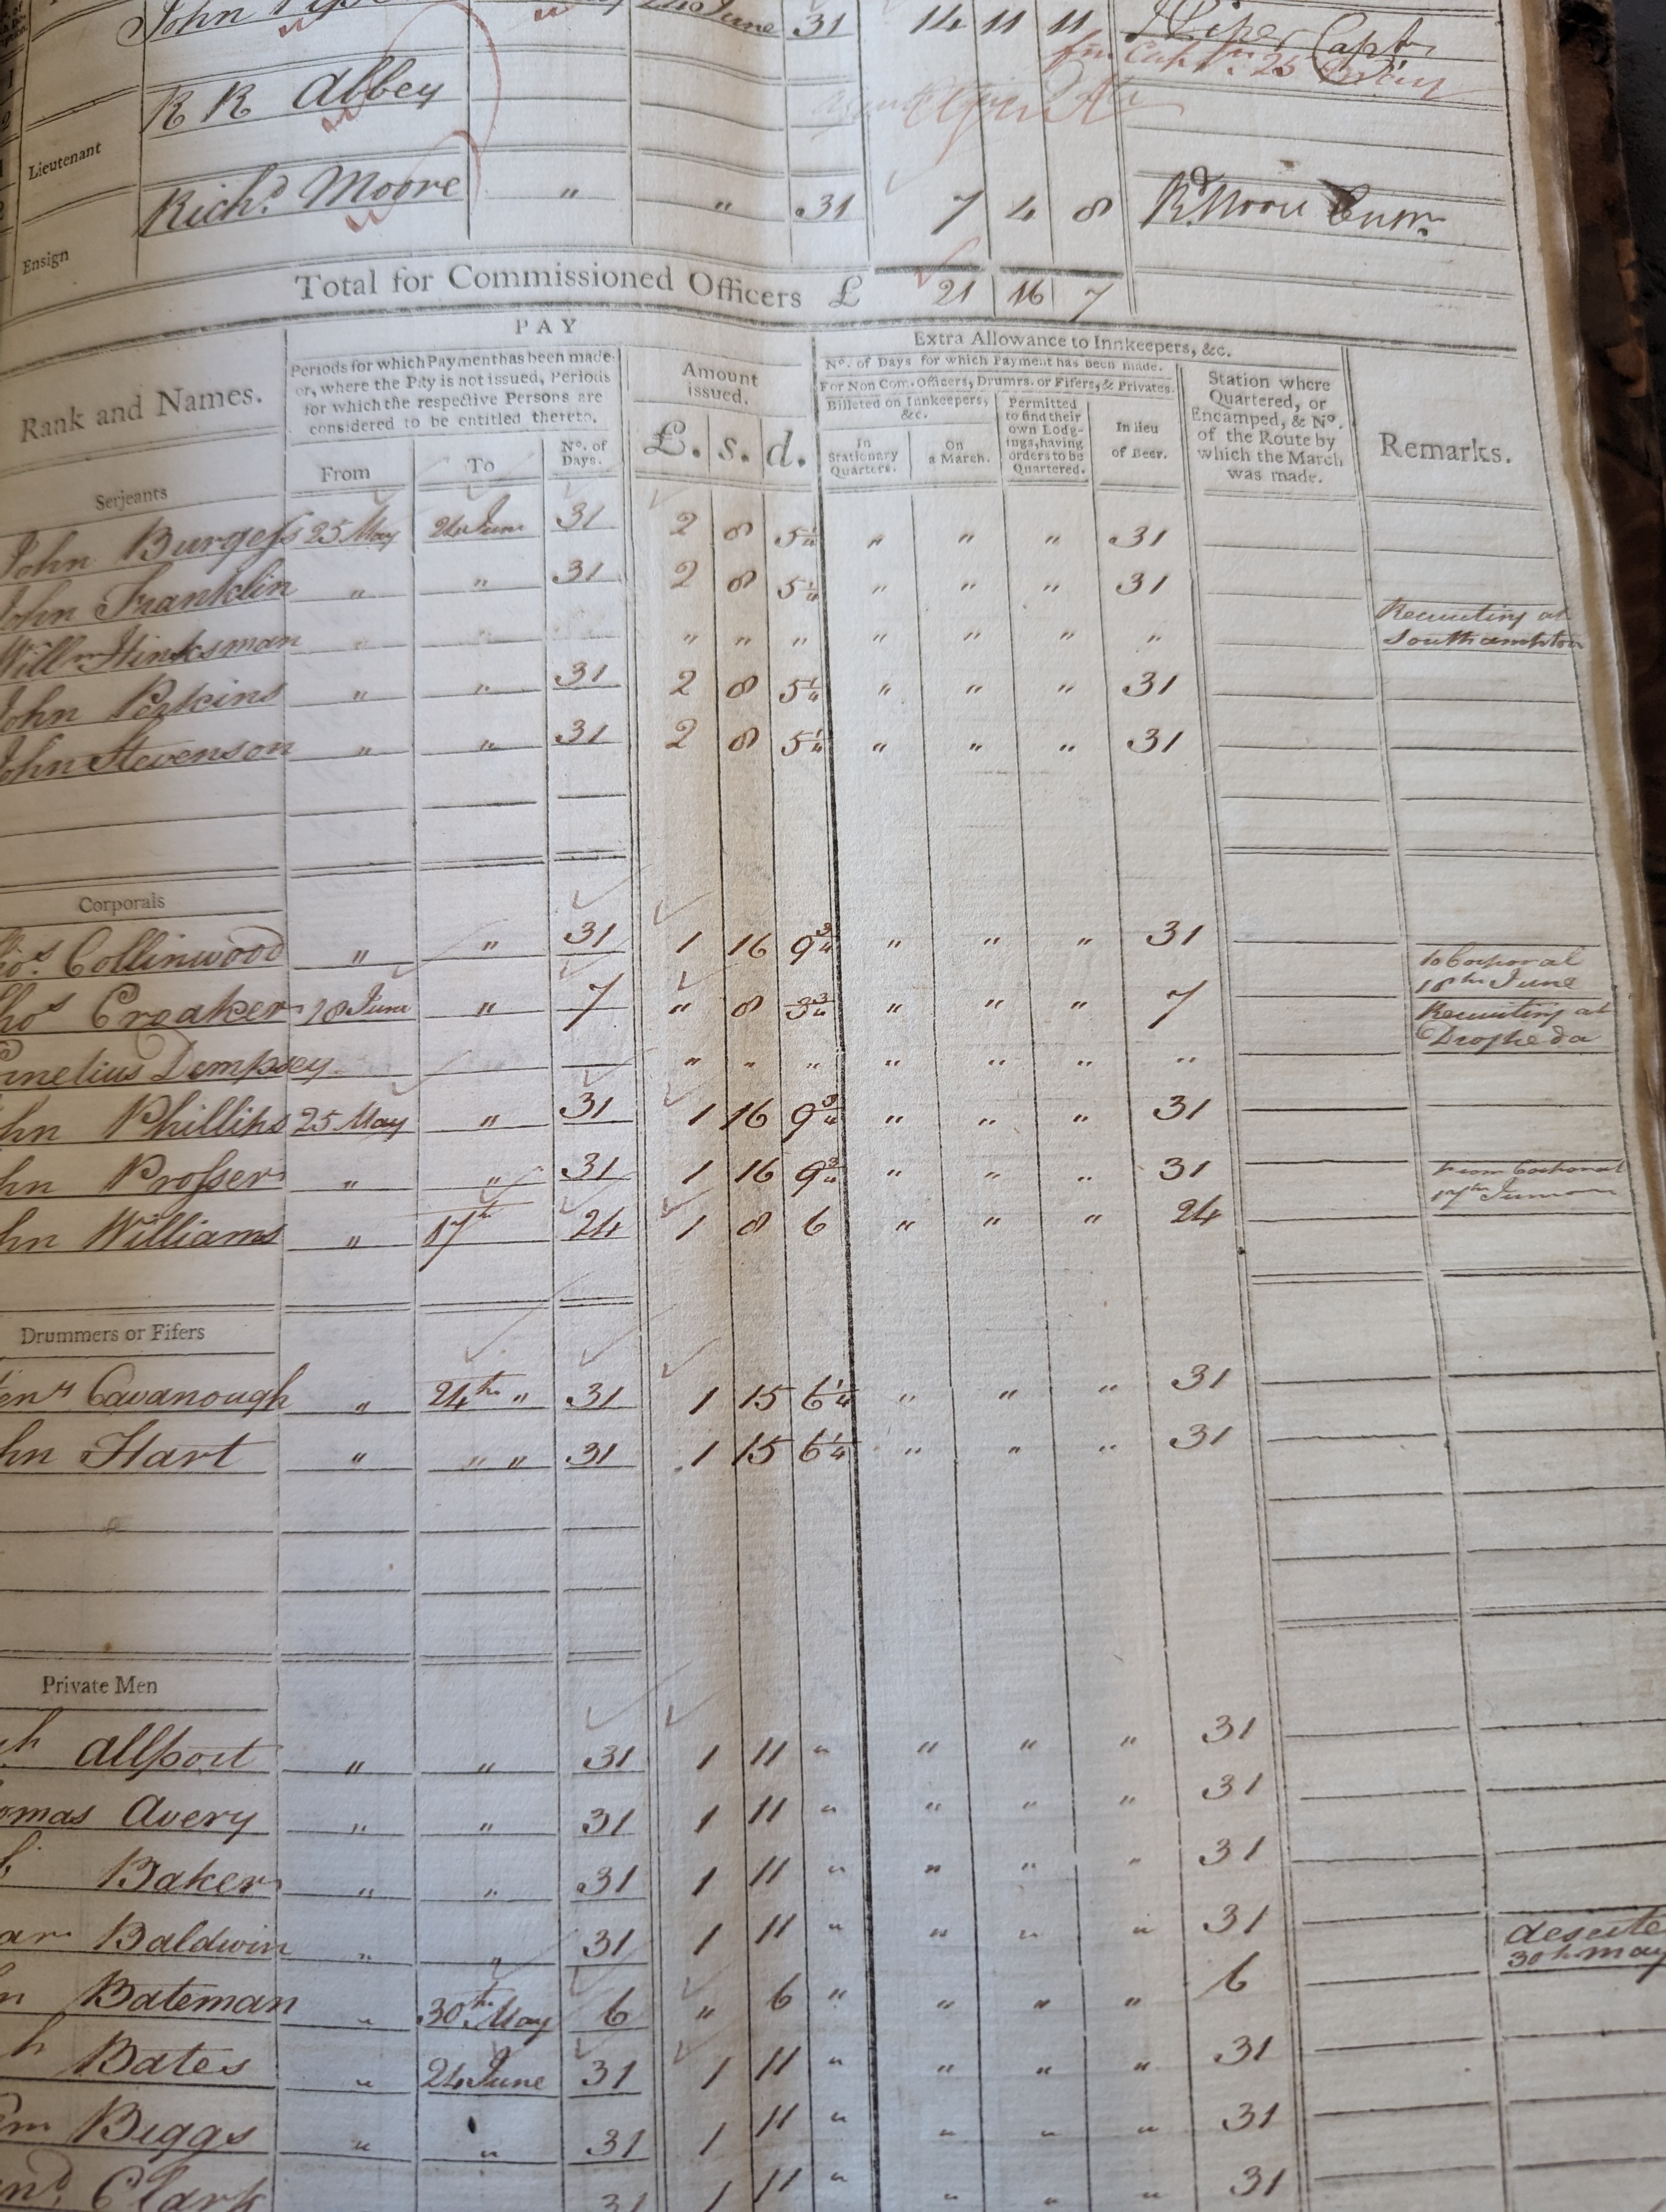 John 24 June 31 14 11 11 J Piper Captn
fm Capt 25
R R Abbey
Lieutenant
Richd. Moore " " 31 7 4 8 Rd Moore
Ensign
Total for Commissioned Officers £ 21 16 7
PAY
Extra Allowance to Innkeepers, &c.
Rank and Names.
Periods for which Payment has been made:
or, where the Pay is not issued, Periods
for which the respective Persons are
considered to be entitled thereto.
From
To
No. of
Days.
Amount
issued.
£. s. d.
No. of Days for which Payment has been made.
For Non Com. Officers, Drumrs. or Fifers, & Privates.
Billeted on Innkeepers,
&c.
In
Stationary
Quarters.
On
a March.
Permitted
to find their
own Lodg-
ings, having
orders to be
Quartered.
In lieu
of Beer.
Station where
Quartered, or
Encamped, & No.
of the Route by
which the March
was made.
Remarks.
Serjeants
John Burgess 25 May 24 June 31 2 8 5¼ " " " 31
John Franklin " " 31 2 8 5¼ " " " 31
Willm Hinksman " " " " " " " " " Recruiting at
Southampton
John Perkins " " 31 2 8 5¼ " " " 31
John Stevenson " " 31 2 8 5¼ " " " 31
Corporals
Collinwood " " 31 1 16 9¾ " " " 31
to Corporal
18th June
Croaker 18 June " 7 " 8 3¾ " " " 7
Recruiting at
Drogheda
Dempsey " " " " " " "
Phillips 25 May " 31 1 16 9¾ " " " 31
Prosser " " 31 1 16 9¾ " " " 31
from Corporal
17th June
Williams " 17th 24 1 8 6 " " " 24
Drummers or Fifers
Cavanough " 24th " 31 1 15 6¼ " " " 31
Hart " " " 31 1 15 6¼ " " " 31
Private Men
Allport " " 31 1 11 " " " " 31
Avery " " 31 1 11 " " " " 31
Baker " " 31 1 11 " " " " 31
Baldwin " " 31 1 11 " " " " 31
Bateman " 30th May 6 " 6 " " " " 6
30th May
Bates " 24 June 31 1 11 " " " " 31
Biggs " " 31 1 11 " " " " 31
Clark 31 1 11 " " " " 31